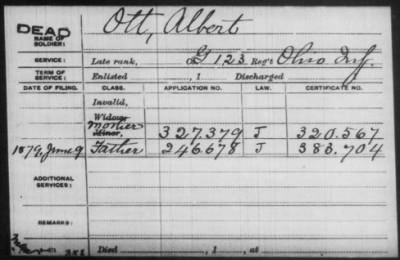 DEAD Ott, Albert
NAME OF
SOLDIER:
SERVICE: Late rank, G 123 Reg't Ohio Inf.
TERM OF
SERVICE: Enlisted , 1 Discharged
DATE OF FILING. CLASS. APPLICATION NO. LAW. CERTIFICATE NO.
Invalid,
Widow,
Mother
Minor, 327.379 J 320.567
1879, June 9 Father 246678 J 383.704
ADDITIONAL
SERVICES:
REMARKS:
Died , 1 , at